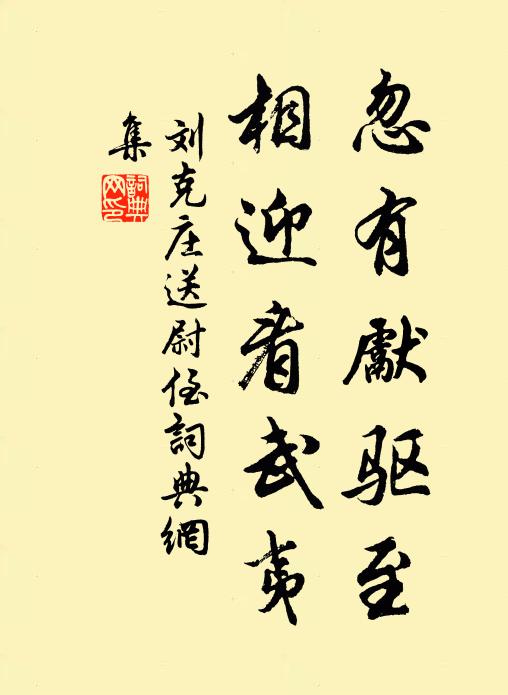 忽有獻驱至
相迎看武夷
刘克庄送尉侄詞典網
集
詞典
网印